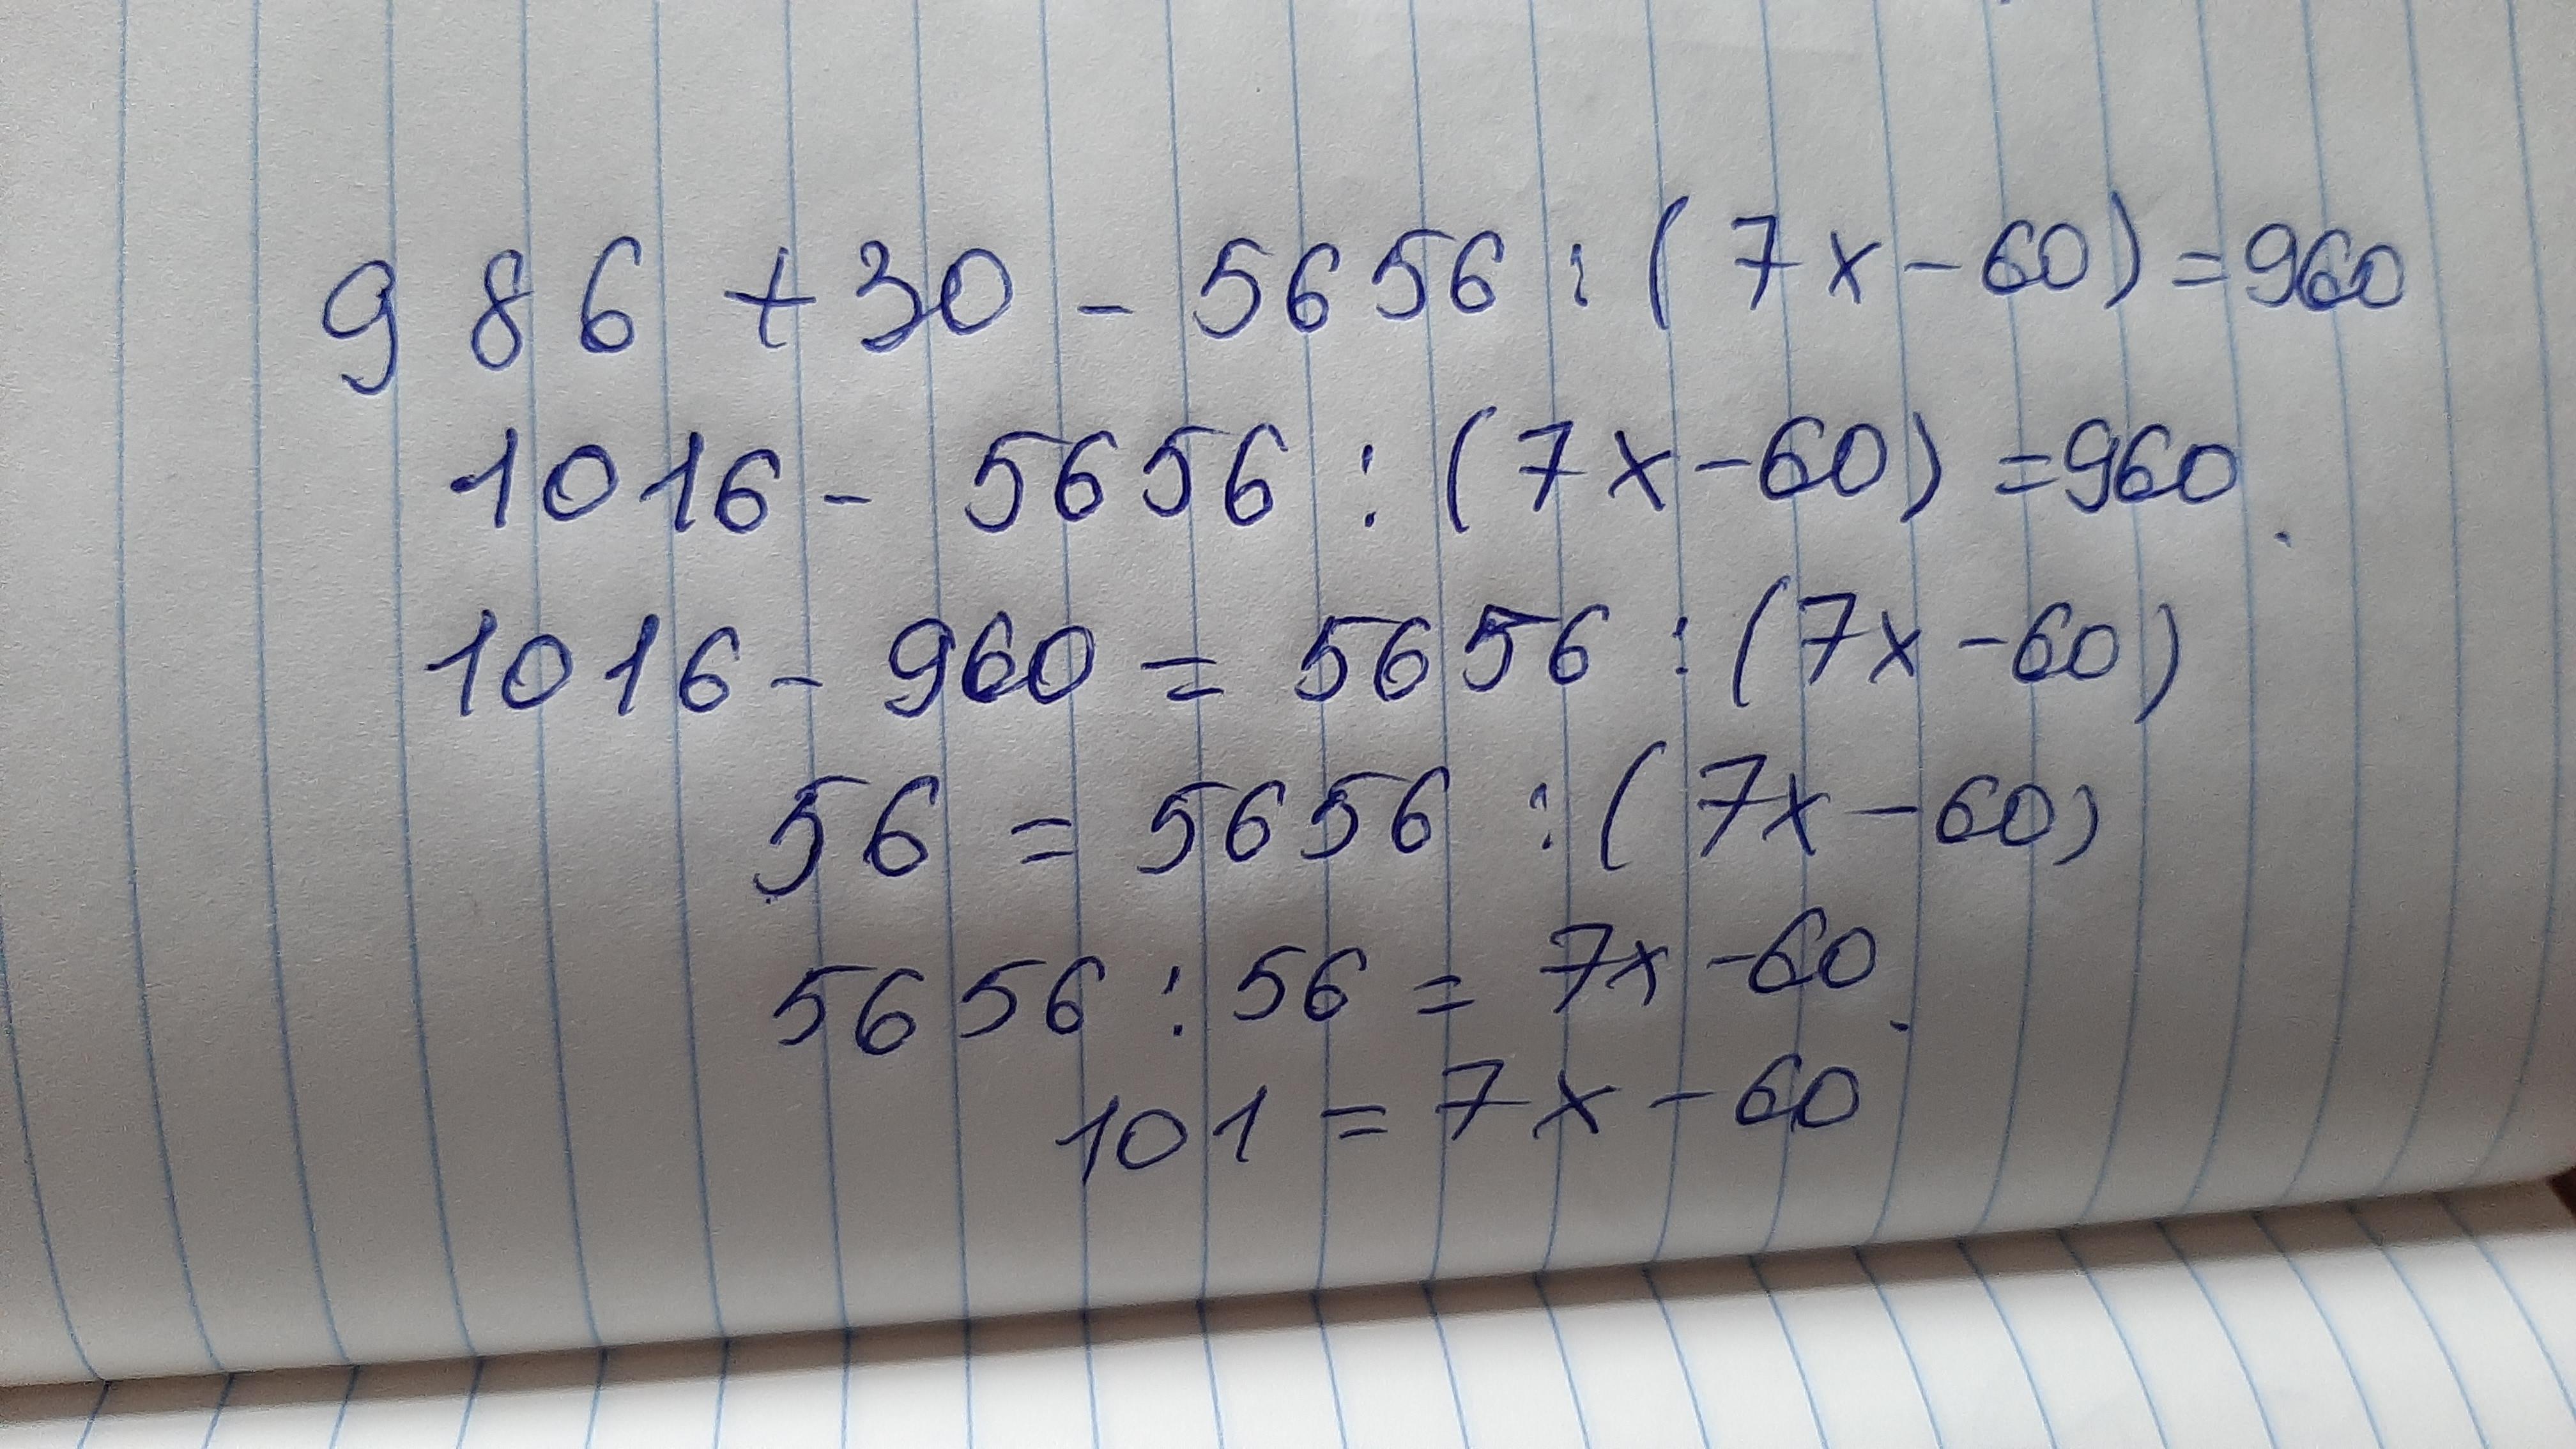 986 + 30 - 5656 : (7x - 60) = 960
1016 - 5656 : (7x - 60) = 960
1016 - 960 = 5656 : (7x - 60)
56 = 5656 : (7x - 60)
5656 : 56 = 7x - 60
101 = 7x - 60